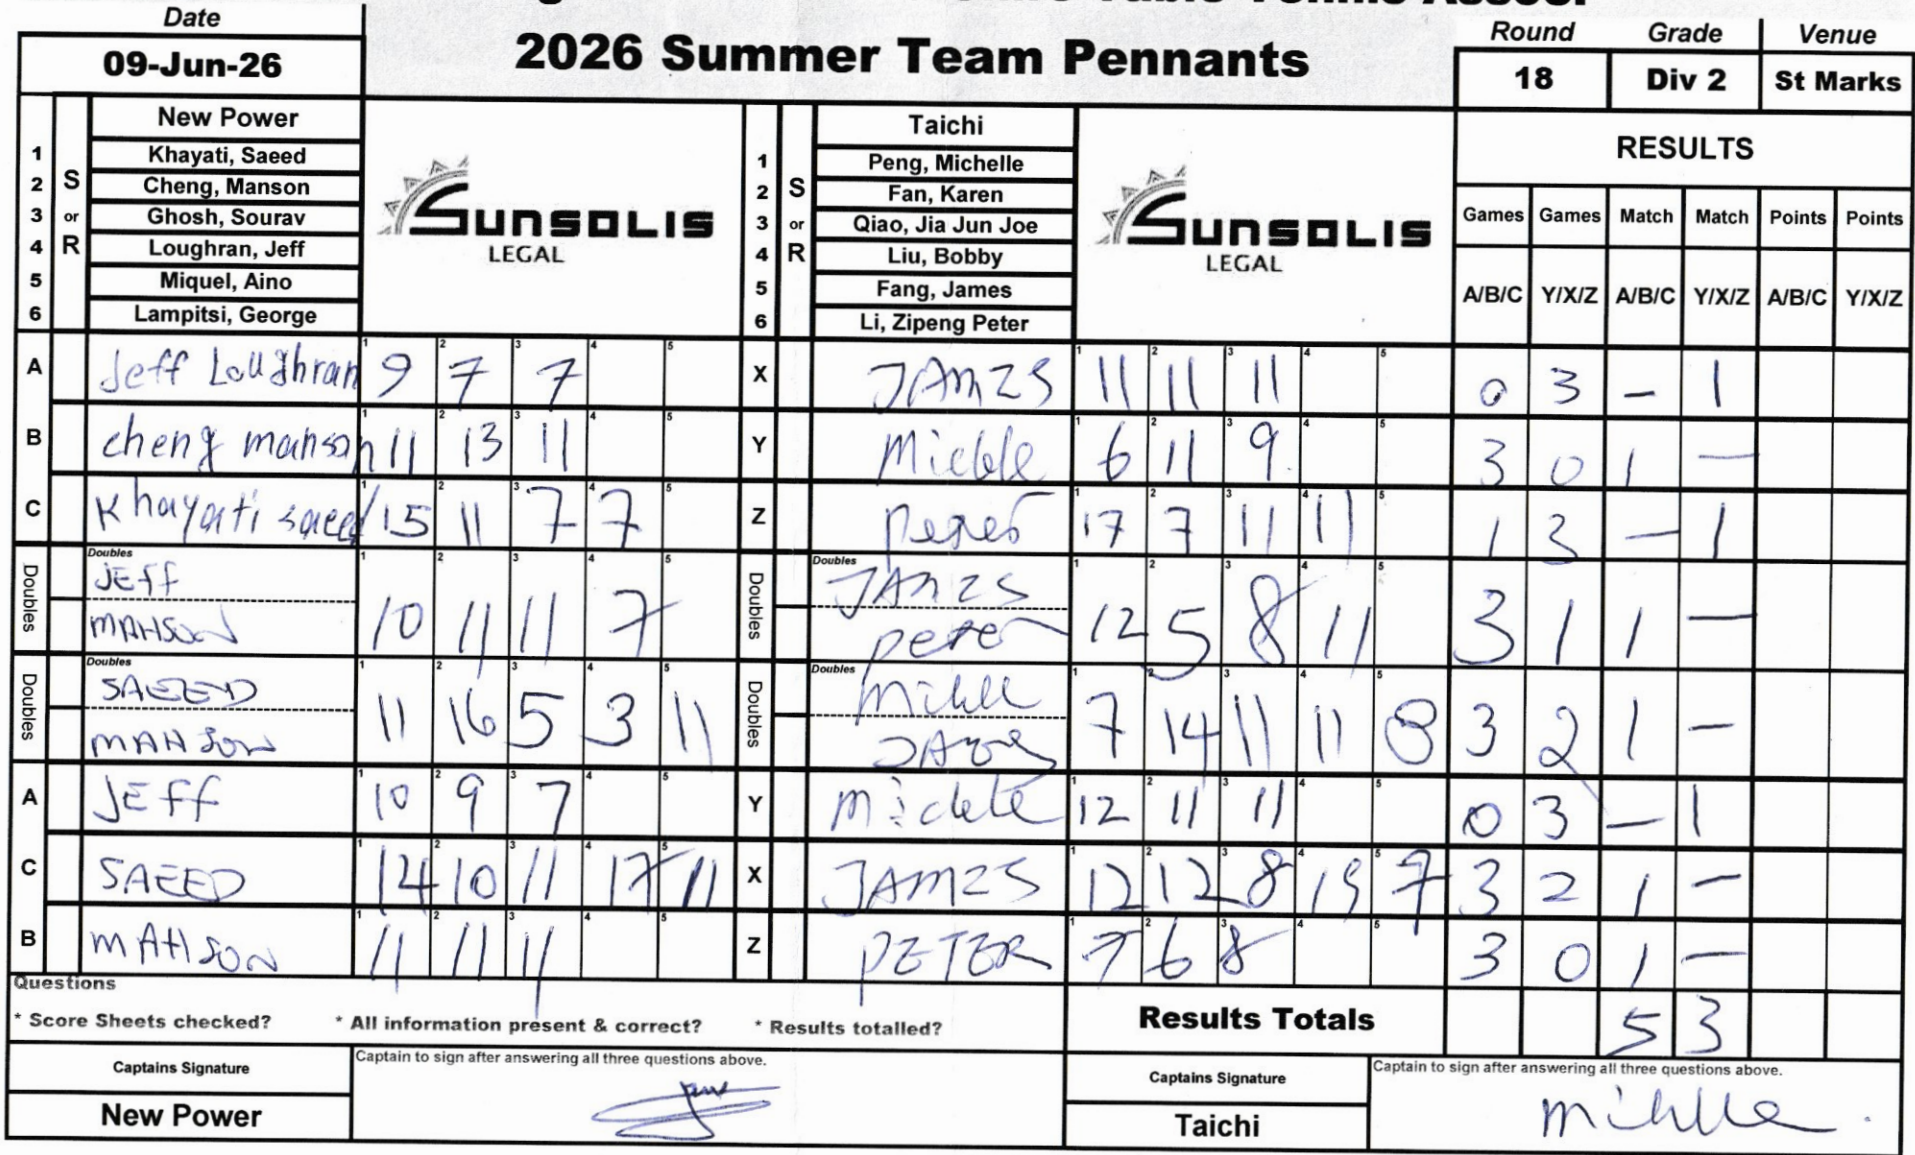 Date
09-Jun-26
2026 Summer Team Pennants
Round Grade Venue
18 Div 2 St Marks
S or R
New Power
1 Khayati, Saeed
2 Cheng, Manson
3 Ghosh, Sourav
4 Loughran, Jeff
5 Miquel, Aino
6 Lampitsi, George
SUNSOLIS
LEGAL
S or R
Taichi
1 Peng, Michelle
2 Fan, Karen
3 Qiao, Jia Jun Joe
4 Liu, Bobby
5 Fang, James
6 Li, Zipeng Peter
SUNSOLIS
LEGAL
RESULTS
Games Games Match Match Points Points
A/B/C Y/X/Z A/B/C Y/X/Z A/B/C Y/X/Z
A Jeff Loughran 9 7 7 X JAMZS 11 11 11 0 3 – 1
B cheng manson 11 13 11 Y 6 11 9 3 0 1 –
C Khayati saeed 15 11 7 7 Z 17 7 11 11 1 3 – 1
Doubles JEff Doubles JAMZS
MAHSON 10 11 11 7 peter 12 5 8 11 3 1 1 –
Doubles SAEED Doubles
MAHSON 11 16 5 3 11 7 14 11 11 8 3 2 1 –
A JEff 10 9 7 Y 12 11 11 0 3 – 1
C SAEED 14 10 11 17 11 X JAMZS 12 12 8 19 7 3 2 1 –
B MAHSON 11 11 11 Z PETER 7 6 8 3 0 1 –
Questions
* Score Sheets checked? * All information present & correct? * Results totalled?
Results Totals 5 3
Captains Signature Captain to sign after answering all three questions above.
New Power
Captains Signature Captain to sign after answering all three questions above.
Taichi